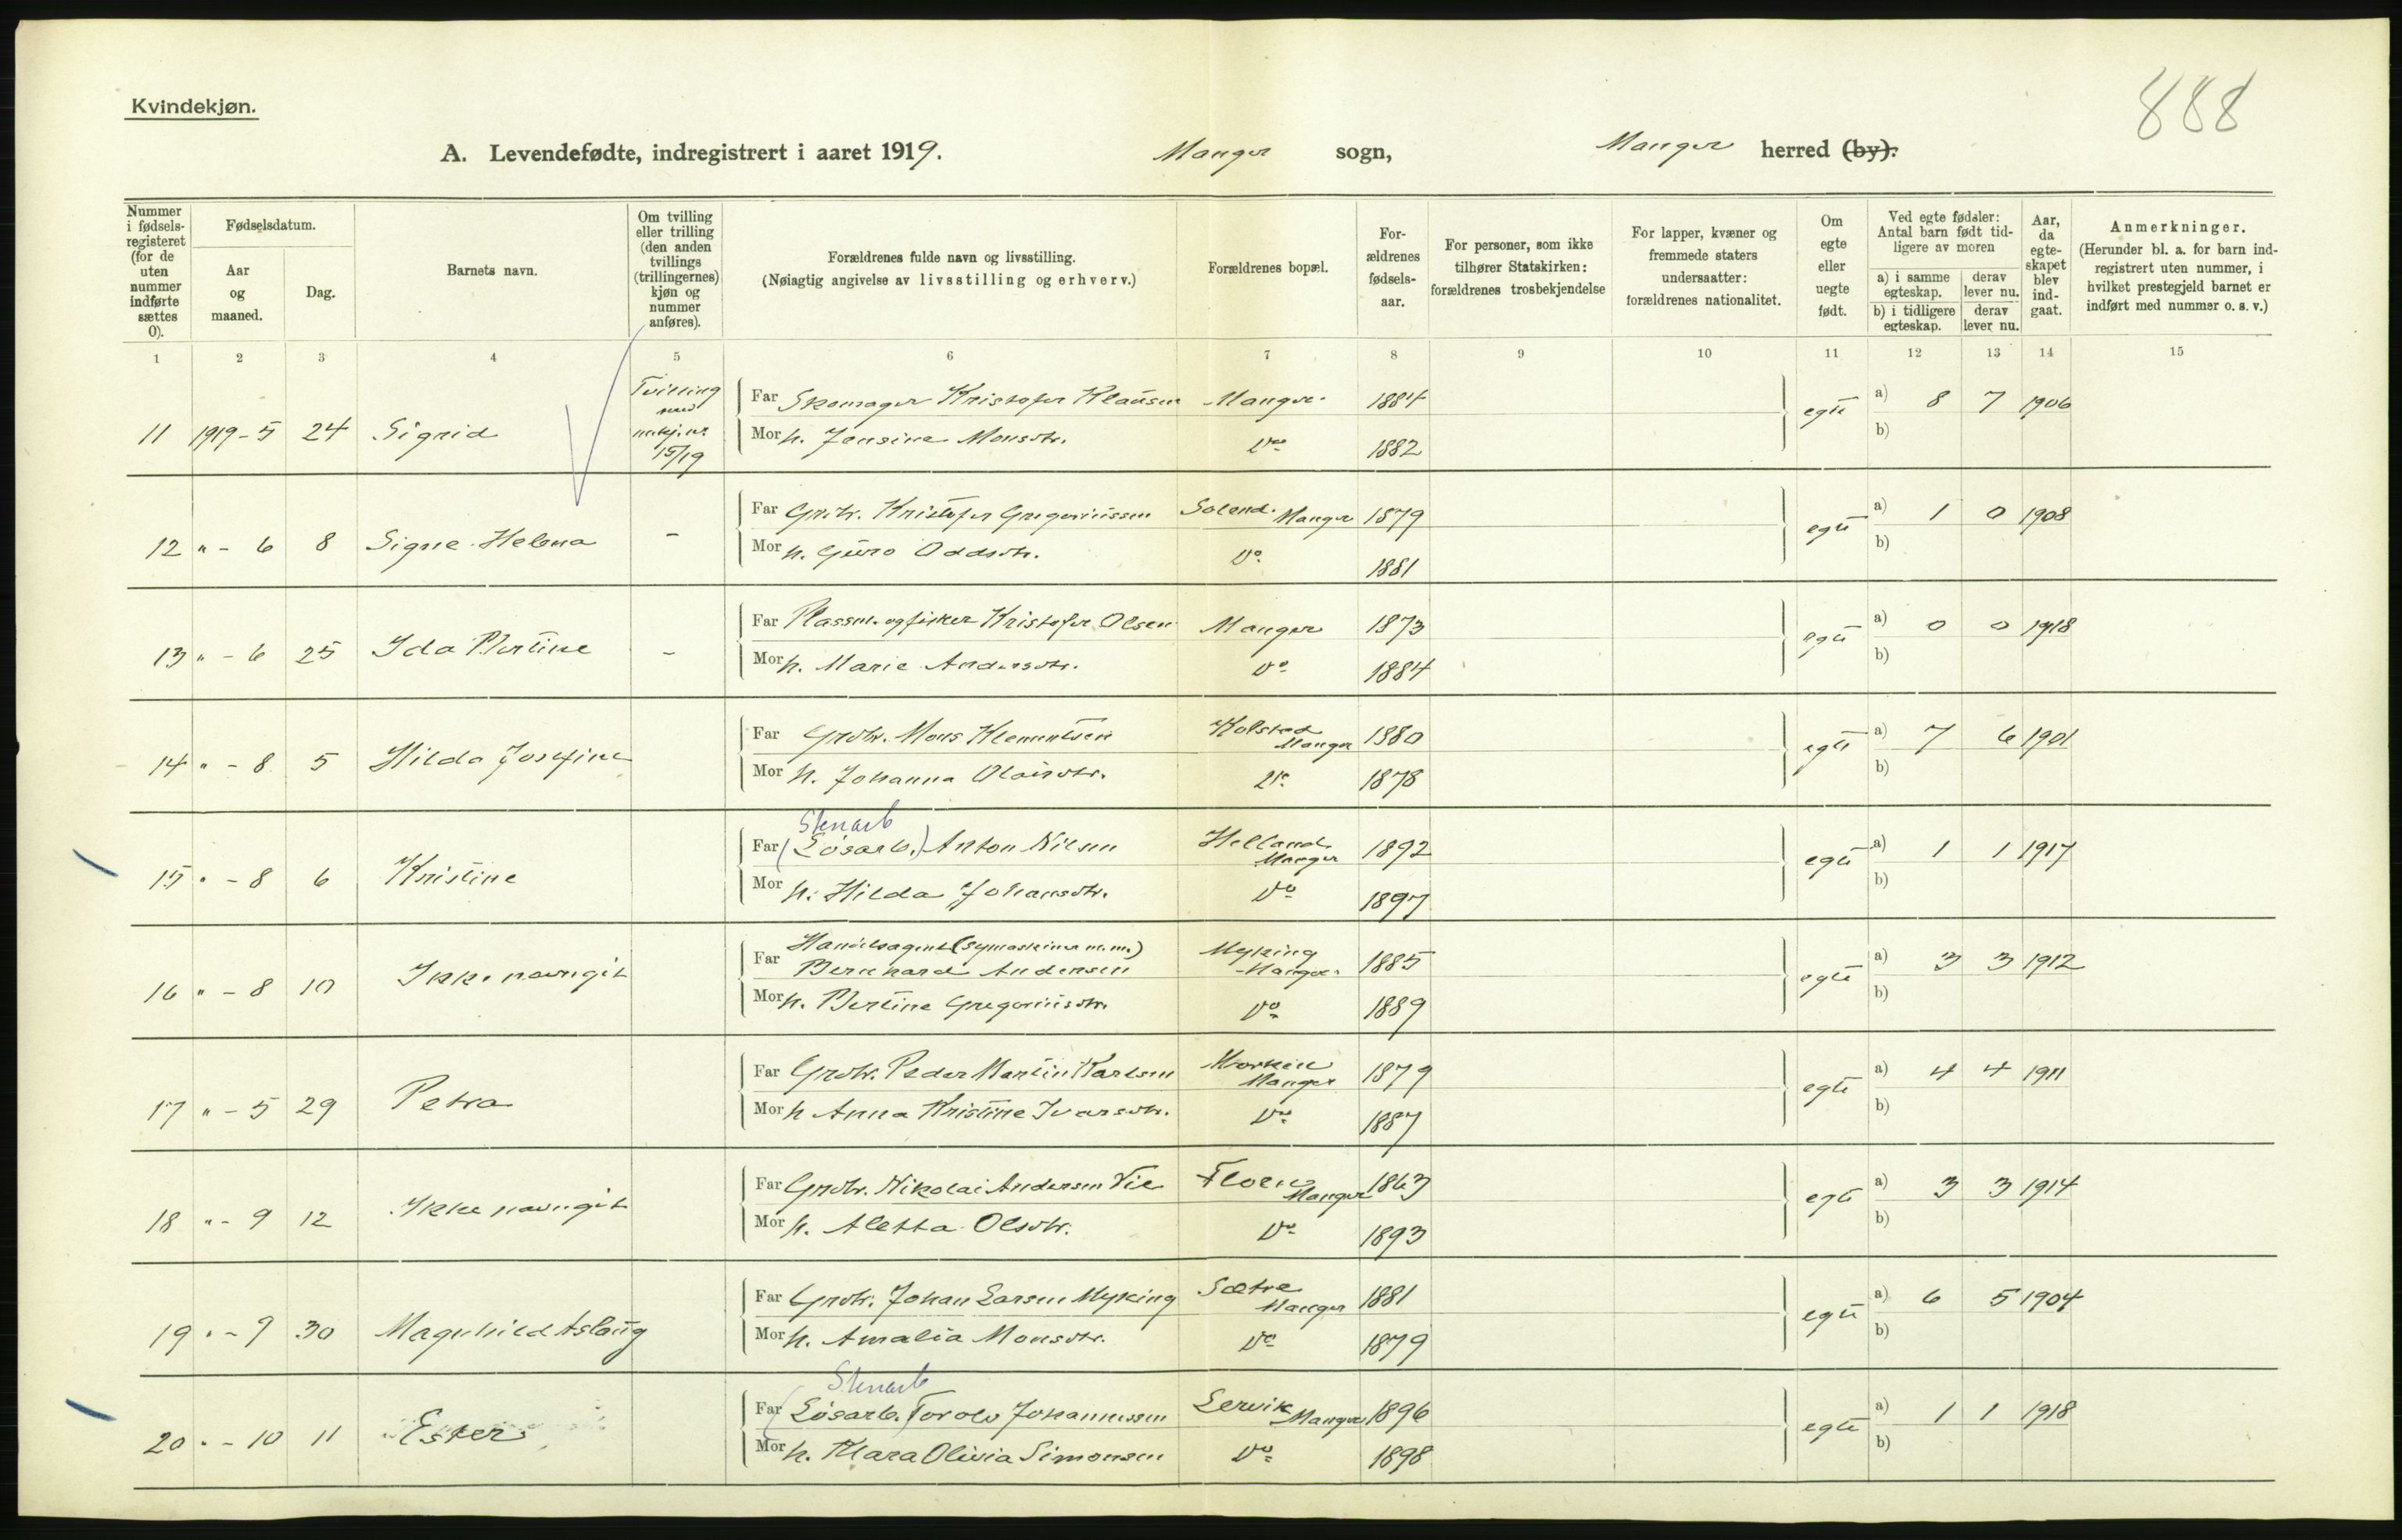 888
Kvindekjøn.
A. Levendefødte, indregistrert i aaret 1919. Manger sogn, Manger herred (by).
Nummer i fødselsregisteret (for de uten nummer indførte sættes 0). Fødselsdatum. Aar og maaned. Dag. Barnets navn. Om tvilling eller trilling (den anden tvillings (trillingernes) kjøn og nummer anføres). Forældrenes fulde navn og livsstilling. (Nøiagtig angivelse av livsstilling og erhverv.) Forældrenes bopæl. Forældrenes fødselsaar. For personer, som ikke tilhører Statskirken: forældrenes trosbekjendelse For lapper, kvæner og fremmede staters undersaatter: forældrenes nationalitet. Om egte eller uegte født. Ved egte fødsler: Antal barn født tidligere av moren a) i samme egteskap. derav lever nu. b) i tidligere egteskap. derav lever nu. Aar, da egteskapet blev indgaat. Anmerkninger. (Herunder bl. a. for barn indregistrert uten nummer, i hvilket prestegjeld barnet er indført med nummer o. s. v.)
1 2 3 4 5 6 7 8 9 10 11 12 13 14 15
Tvilling med mkj. nr. 15/19
Far Skomager Kristofer Klausen Manger 1884 egte a) 8 7 1906
11 1919-5 24 Sigrid Mor h. Jensine Monsdtr. Do 1882 b)
Far Grdbr. Kristofer Gregoriussen Soland. Manger 1879 egte a) 1 0 1908
12 " - 6 8 Signe Helena - Mor h. Guro Oddsdtr. Do 1881 b)
Far Plassm. og fisker Kristofer Olsen Manger 1873 egte a) 0 0 1918
13 " - 6 25 Ida Bertine - Mor h. Marie Andersdtr. Do 1884 b)
Far Grdbr. Mons Klementsen Kolstad Manger 1880 egte a) 7 6 1901
14 " - 8 5 Hilda Josefine Mor h. Johanna Olaisdtr. Do 1878 b)
Stenarb
Far (Løsarb.) Anton Nilsen Helland. Manger 1892 egte a) 1 1 1917
15 " - 8 6 Kristine Mor h. Hilda Johansdtr. Do 1897 b)
Handelsagent (symaskiner m.m.)
Far Bernhard Andersen Myking Manger 1885 egte a) 3 3 1912
16 " - 8 10 Ikke navngit Mor h. Bertine Gregoriusdtr. Do 1889 b)
Far Grdbr. Peder Martin Karlsen Manger 1879 egte a) 4 4 1911
17 " - 5 29 Petra Mor h Anna Kristine Ivarsdtr. Do 1887 b)
Far Grdbr. Nikolai Andersen Vie Floen Manger 1863 egte a) 3 3 1914
18 " - 9 12 Ikke navngit Mor h. Aletta Olsdtr. Do 1893 b)
Far Grdbr. Johan Larsen Myking Sætre Manger 1881 egte a) 6 5 1904
19 " - 9 30 Magnhild Aslaug Mor h. Amalia Monsdtr. Do 1879 b)
Stenarb
Far (Løsarb.) Torolv Johannessen Lervik Manger 1896 egte a) 1 1 1918
20 " - 10 11 Ester Mor h. Klara Olivia Simonsen Do 1898 b)